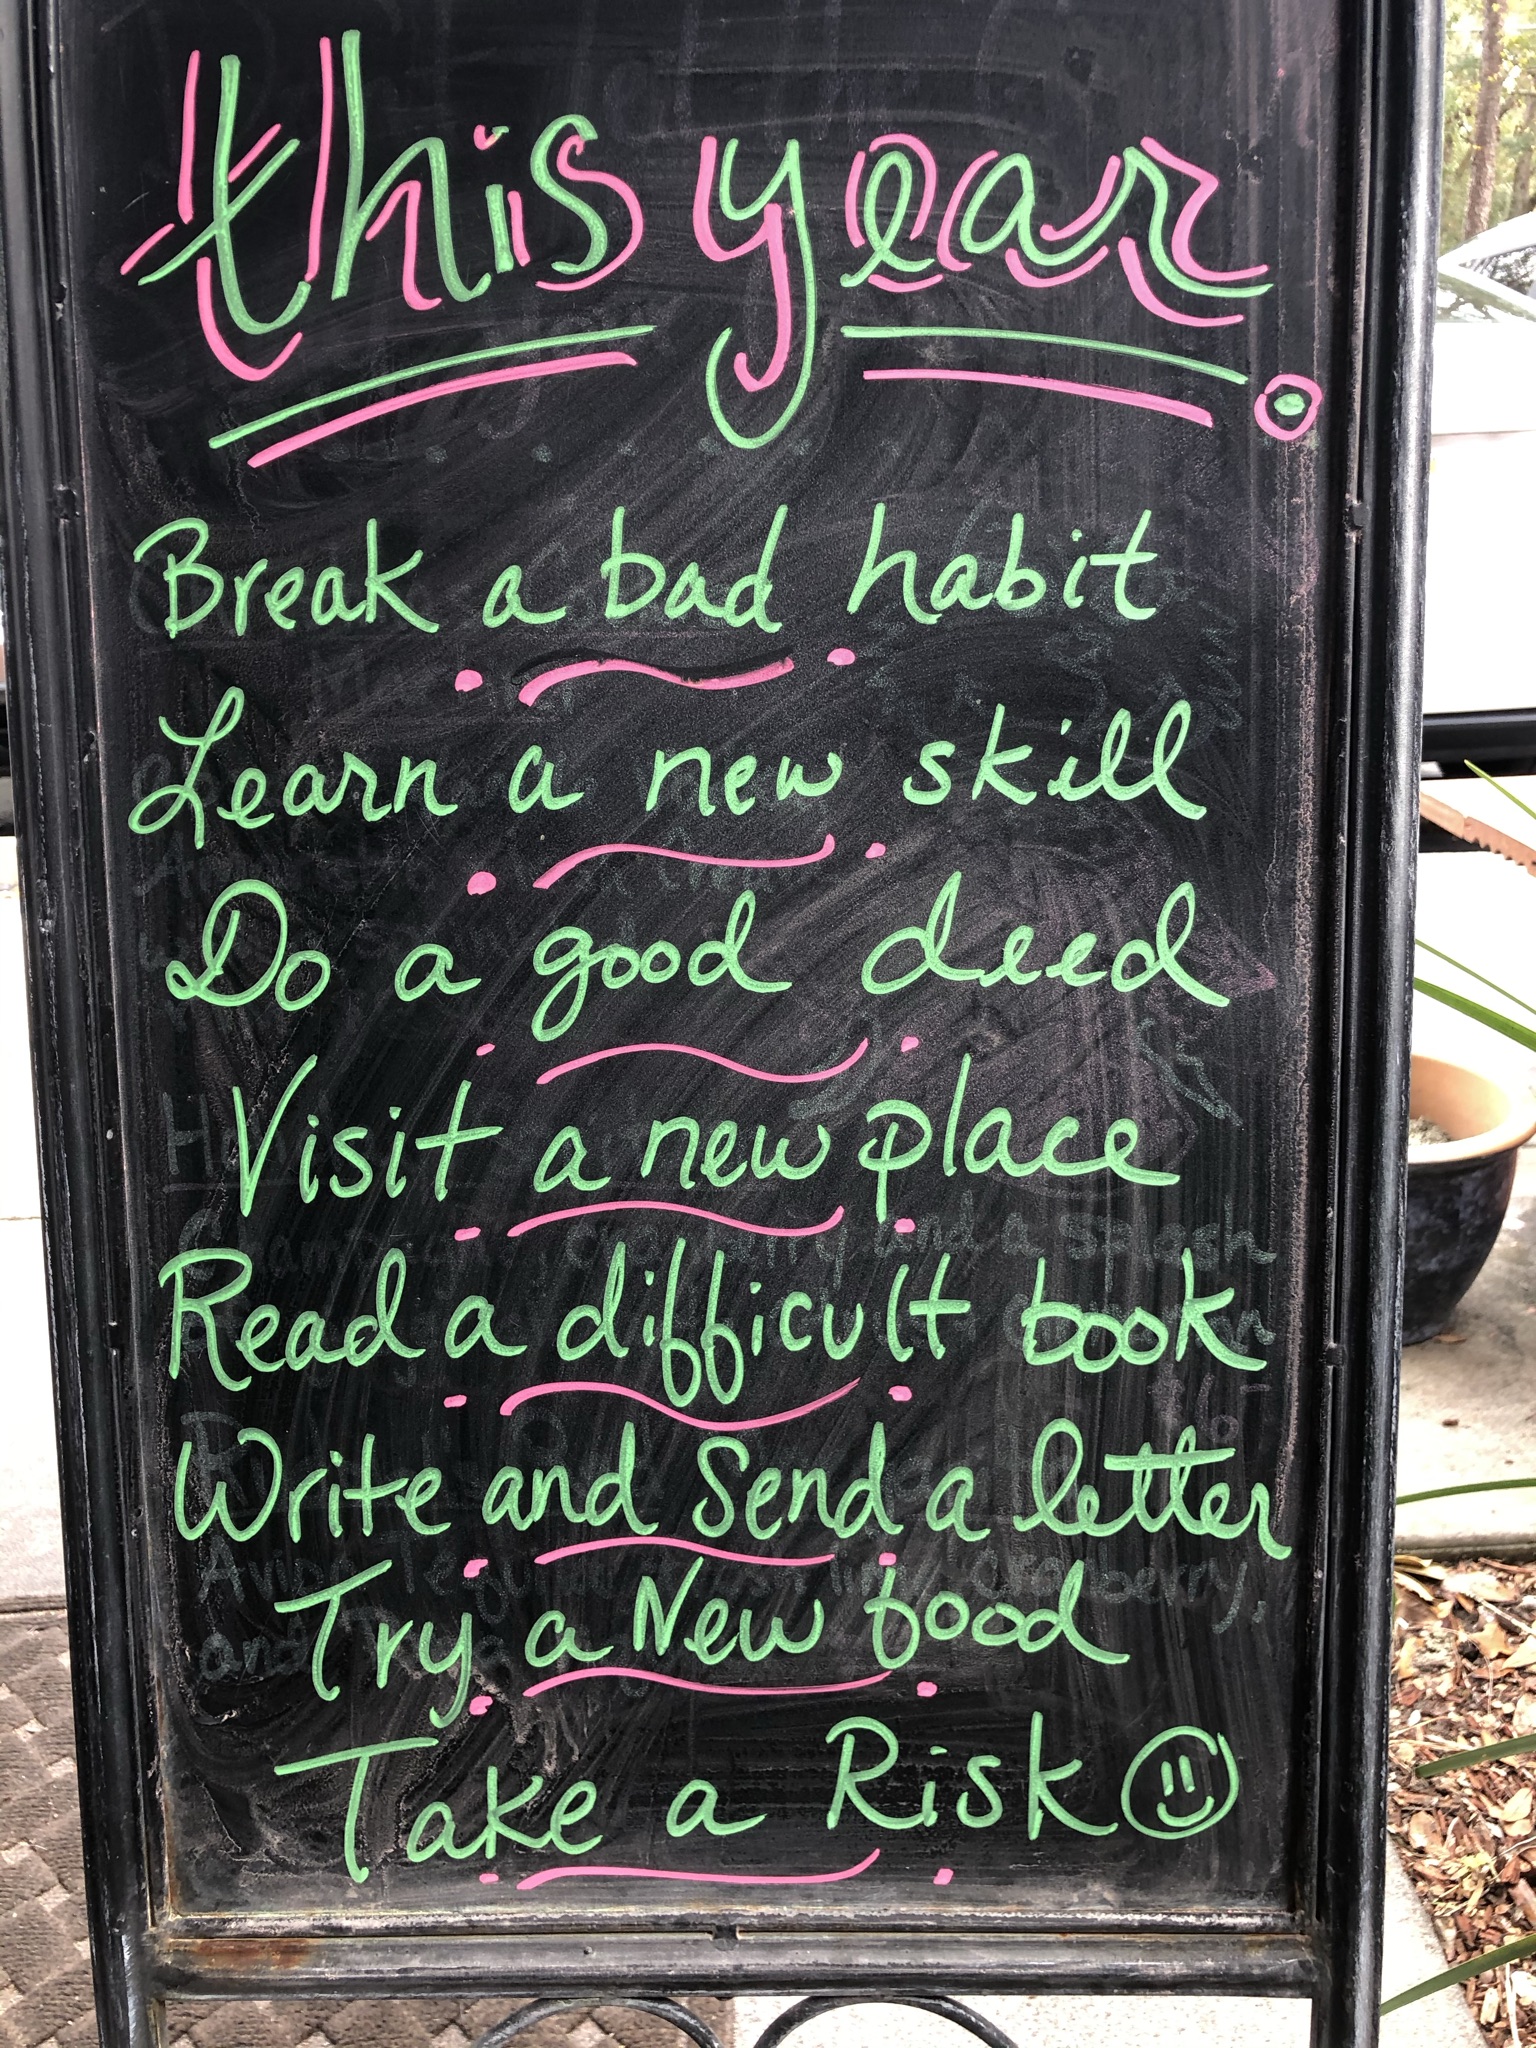 this year.
Break a bad habit
Learn a new skill
Do a good deed
Visit a new place
Read a difficult book
Write and Send a letter
Try a New food
Take a Risk